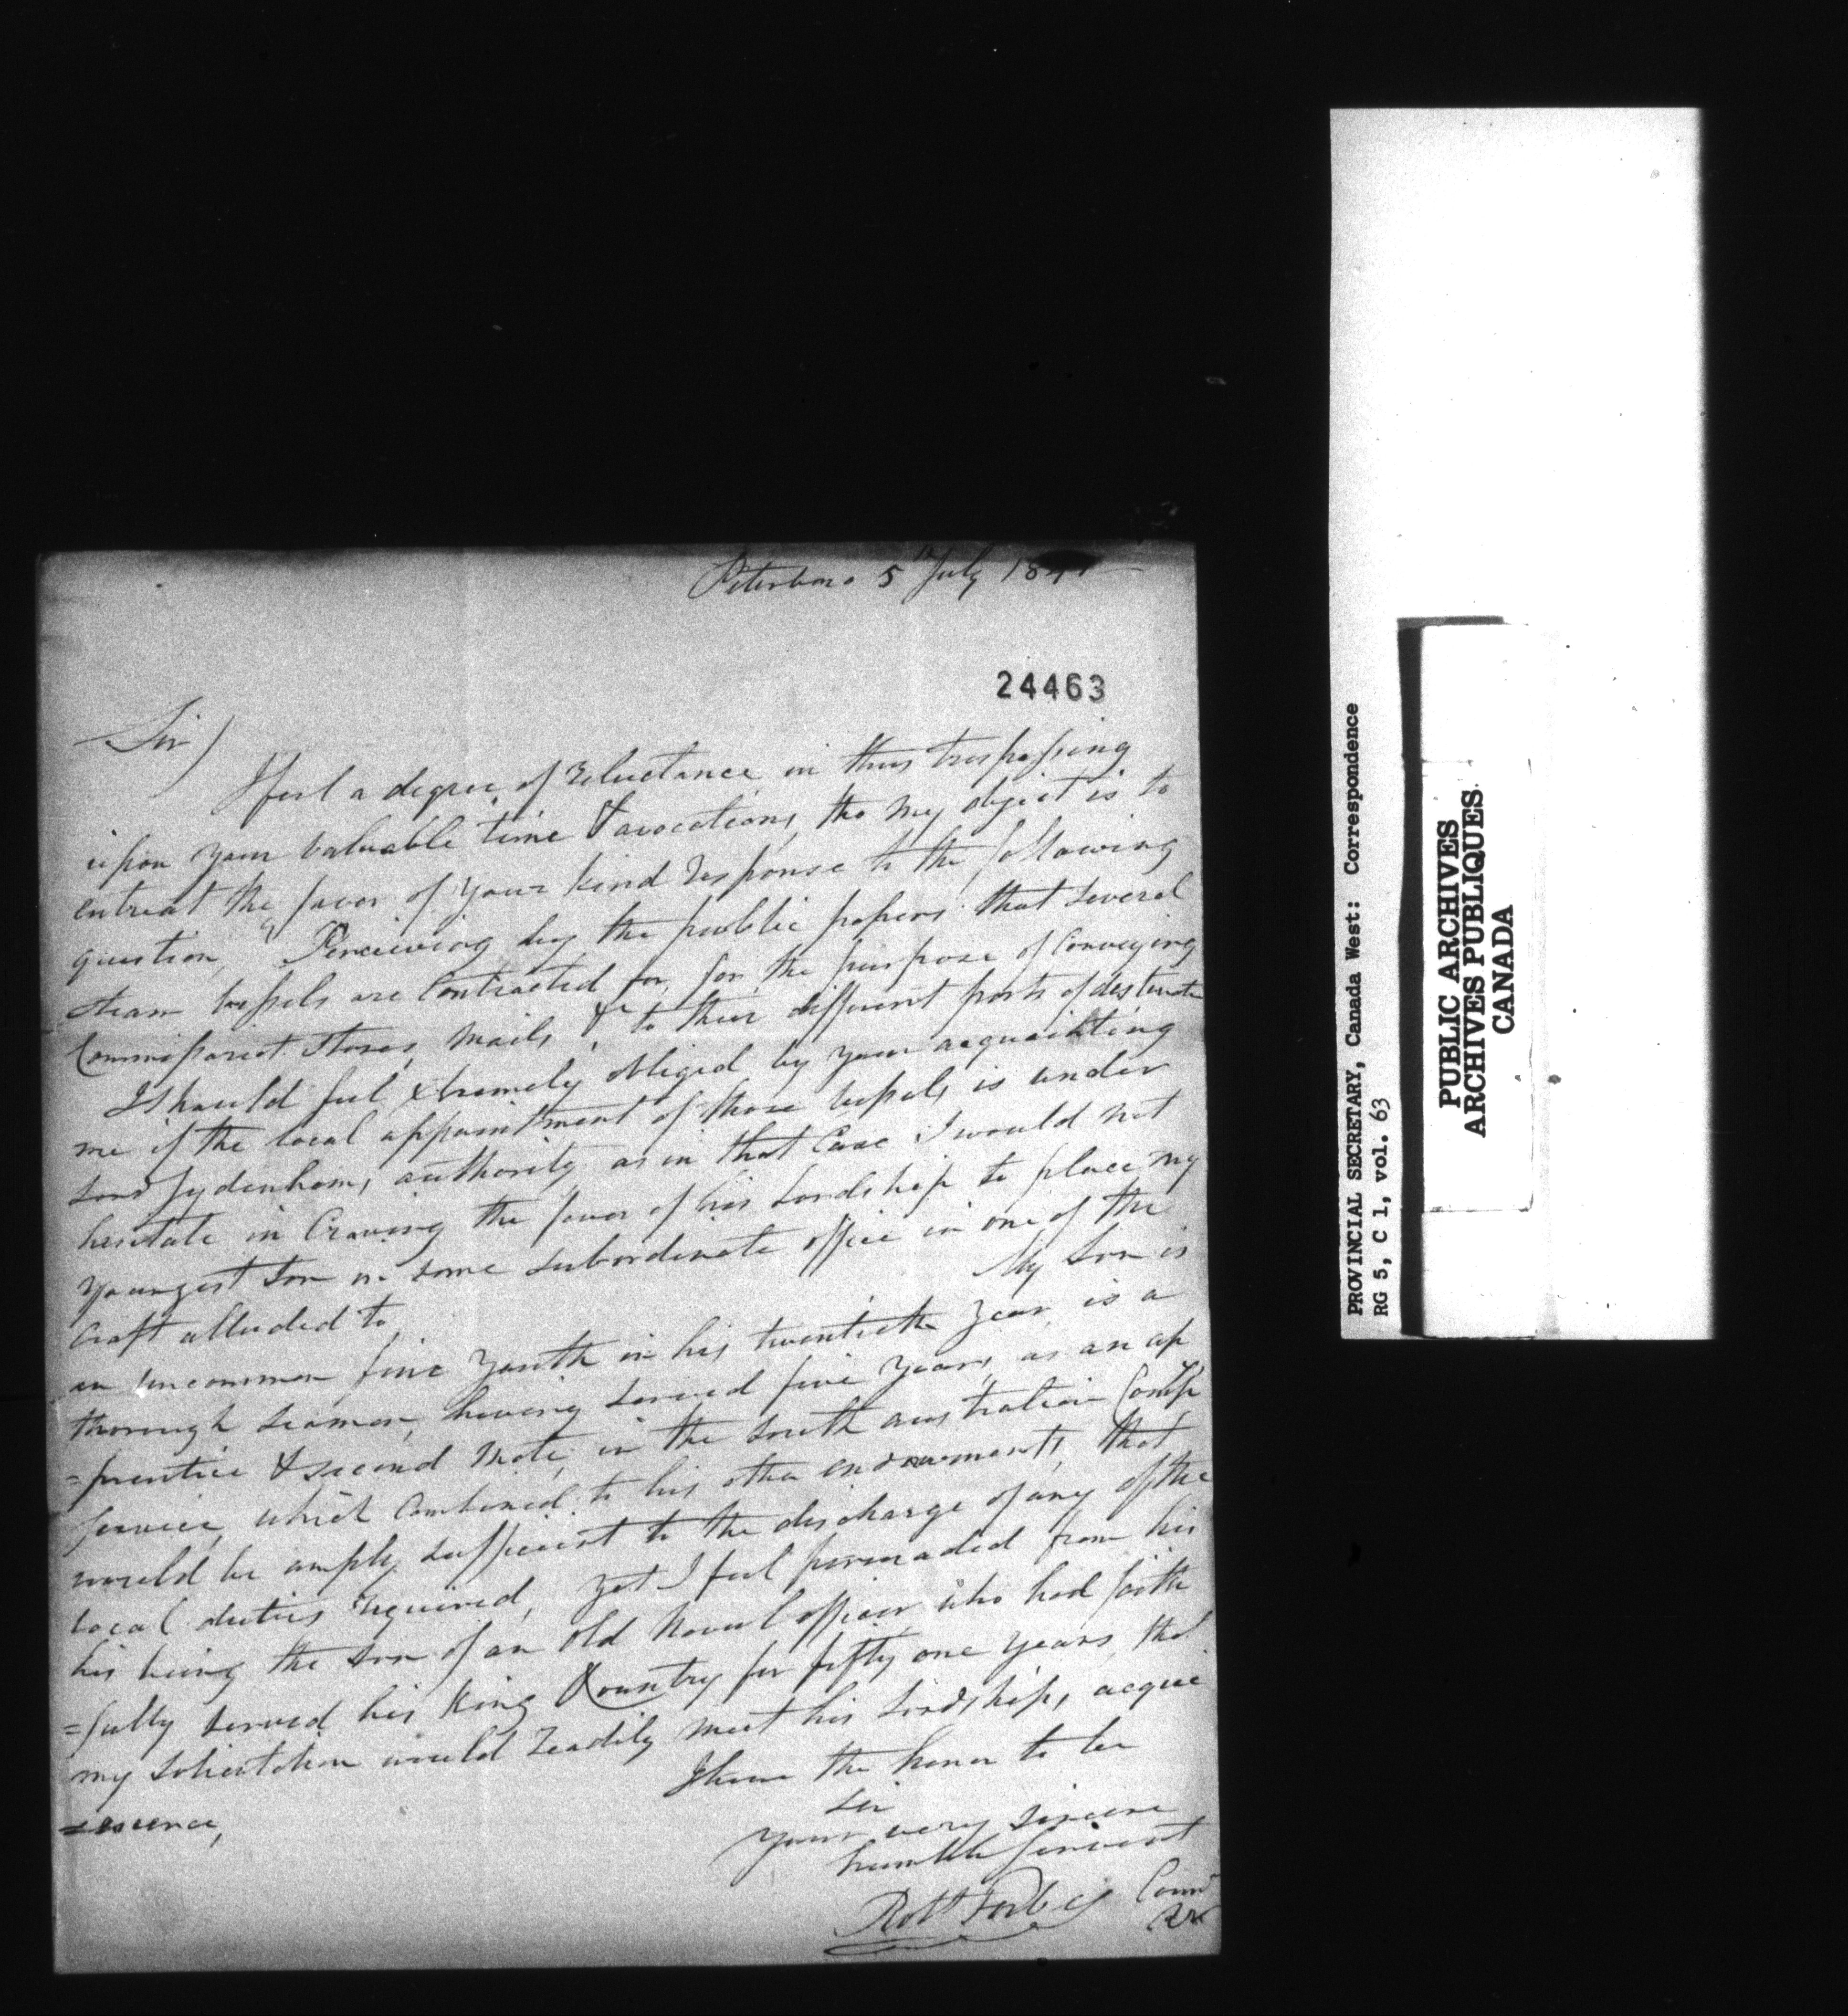 Peterboro 5th July 1841
24463
Sir)
I feel a degree of reluctance in thus trespassing
upon your valuable time & avocations, tho my object is to
entreat the favor of your kind response to the following
question, "Perceiving by the public papers that several
steam vessels are Contracted for, for the purpose of Conveying
Commissariat Stores, Mails &c to their different ports of destination
I should feel extremely obliged by your acquainting
me if the local appointment of those vessels is under
Lord Sydenhams authority as in that Case I would not
hesitate in Craving the favor of his Lordship to place my
youngest Son in some subordinate office in one of the
Craft alluded to My Son is
an uncommon fine youth in his twentieth year, is a
thorough seaman, having served five years, as an ap
=prentice & second Mate, in the South australian Compy
service, which Combined to his other endowments, that
would be amply sufficient to the discharge of any of the
local duties required, yet I feel persuaded from his
his being the son of an old Naval officer who had faith
=fully served his King & Country for fifty one years, that
my solicitation would readily meet his Lordships acqui
=escence,
I have the honor to be
Sir
your very sincere
humble servant
Robt Forbes Comr
RN
PROVINCIAL SECRETARY, Canada West: Correspondence
RG 5, C 1, vol. 63
PUBLIC ARCHIVES
ARCHIVES PUBLIQUES
CANADA